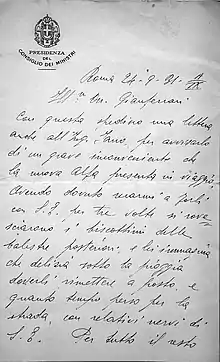 PRESIDENZA
DEL
CONSIGLIO DEI MINISTRI
Roma 24-9-31-
On. Gianferrari
Con questa spedivo una lettera
anche all'Ing. Jano, per avvertirlo
di un grave inconveniente che
la nuova Alfa presenta in viaggio
Avendo dovuto recarmi a Forlì
con S.E. per tre volte si rove-
sciarono i biscottini delle
balestre posteriori, e lei immagina
che delizia sotto la pioggia
doverli rimettere a posto, e
quanto tempo perso per la
strada, con relativi nervi di
S.E. Per tutto il resto